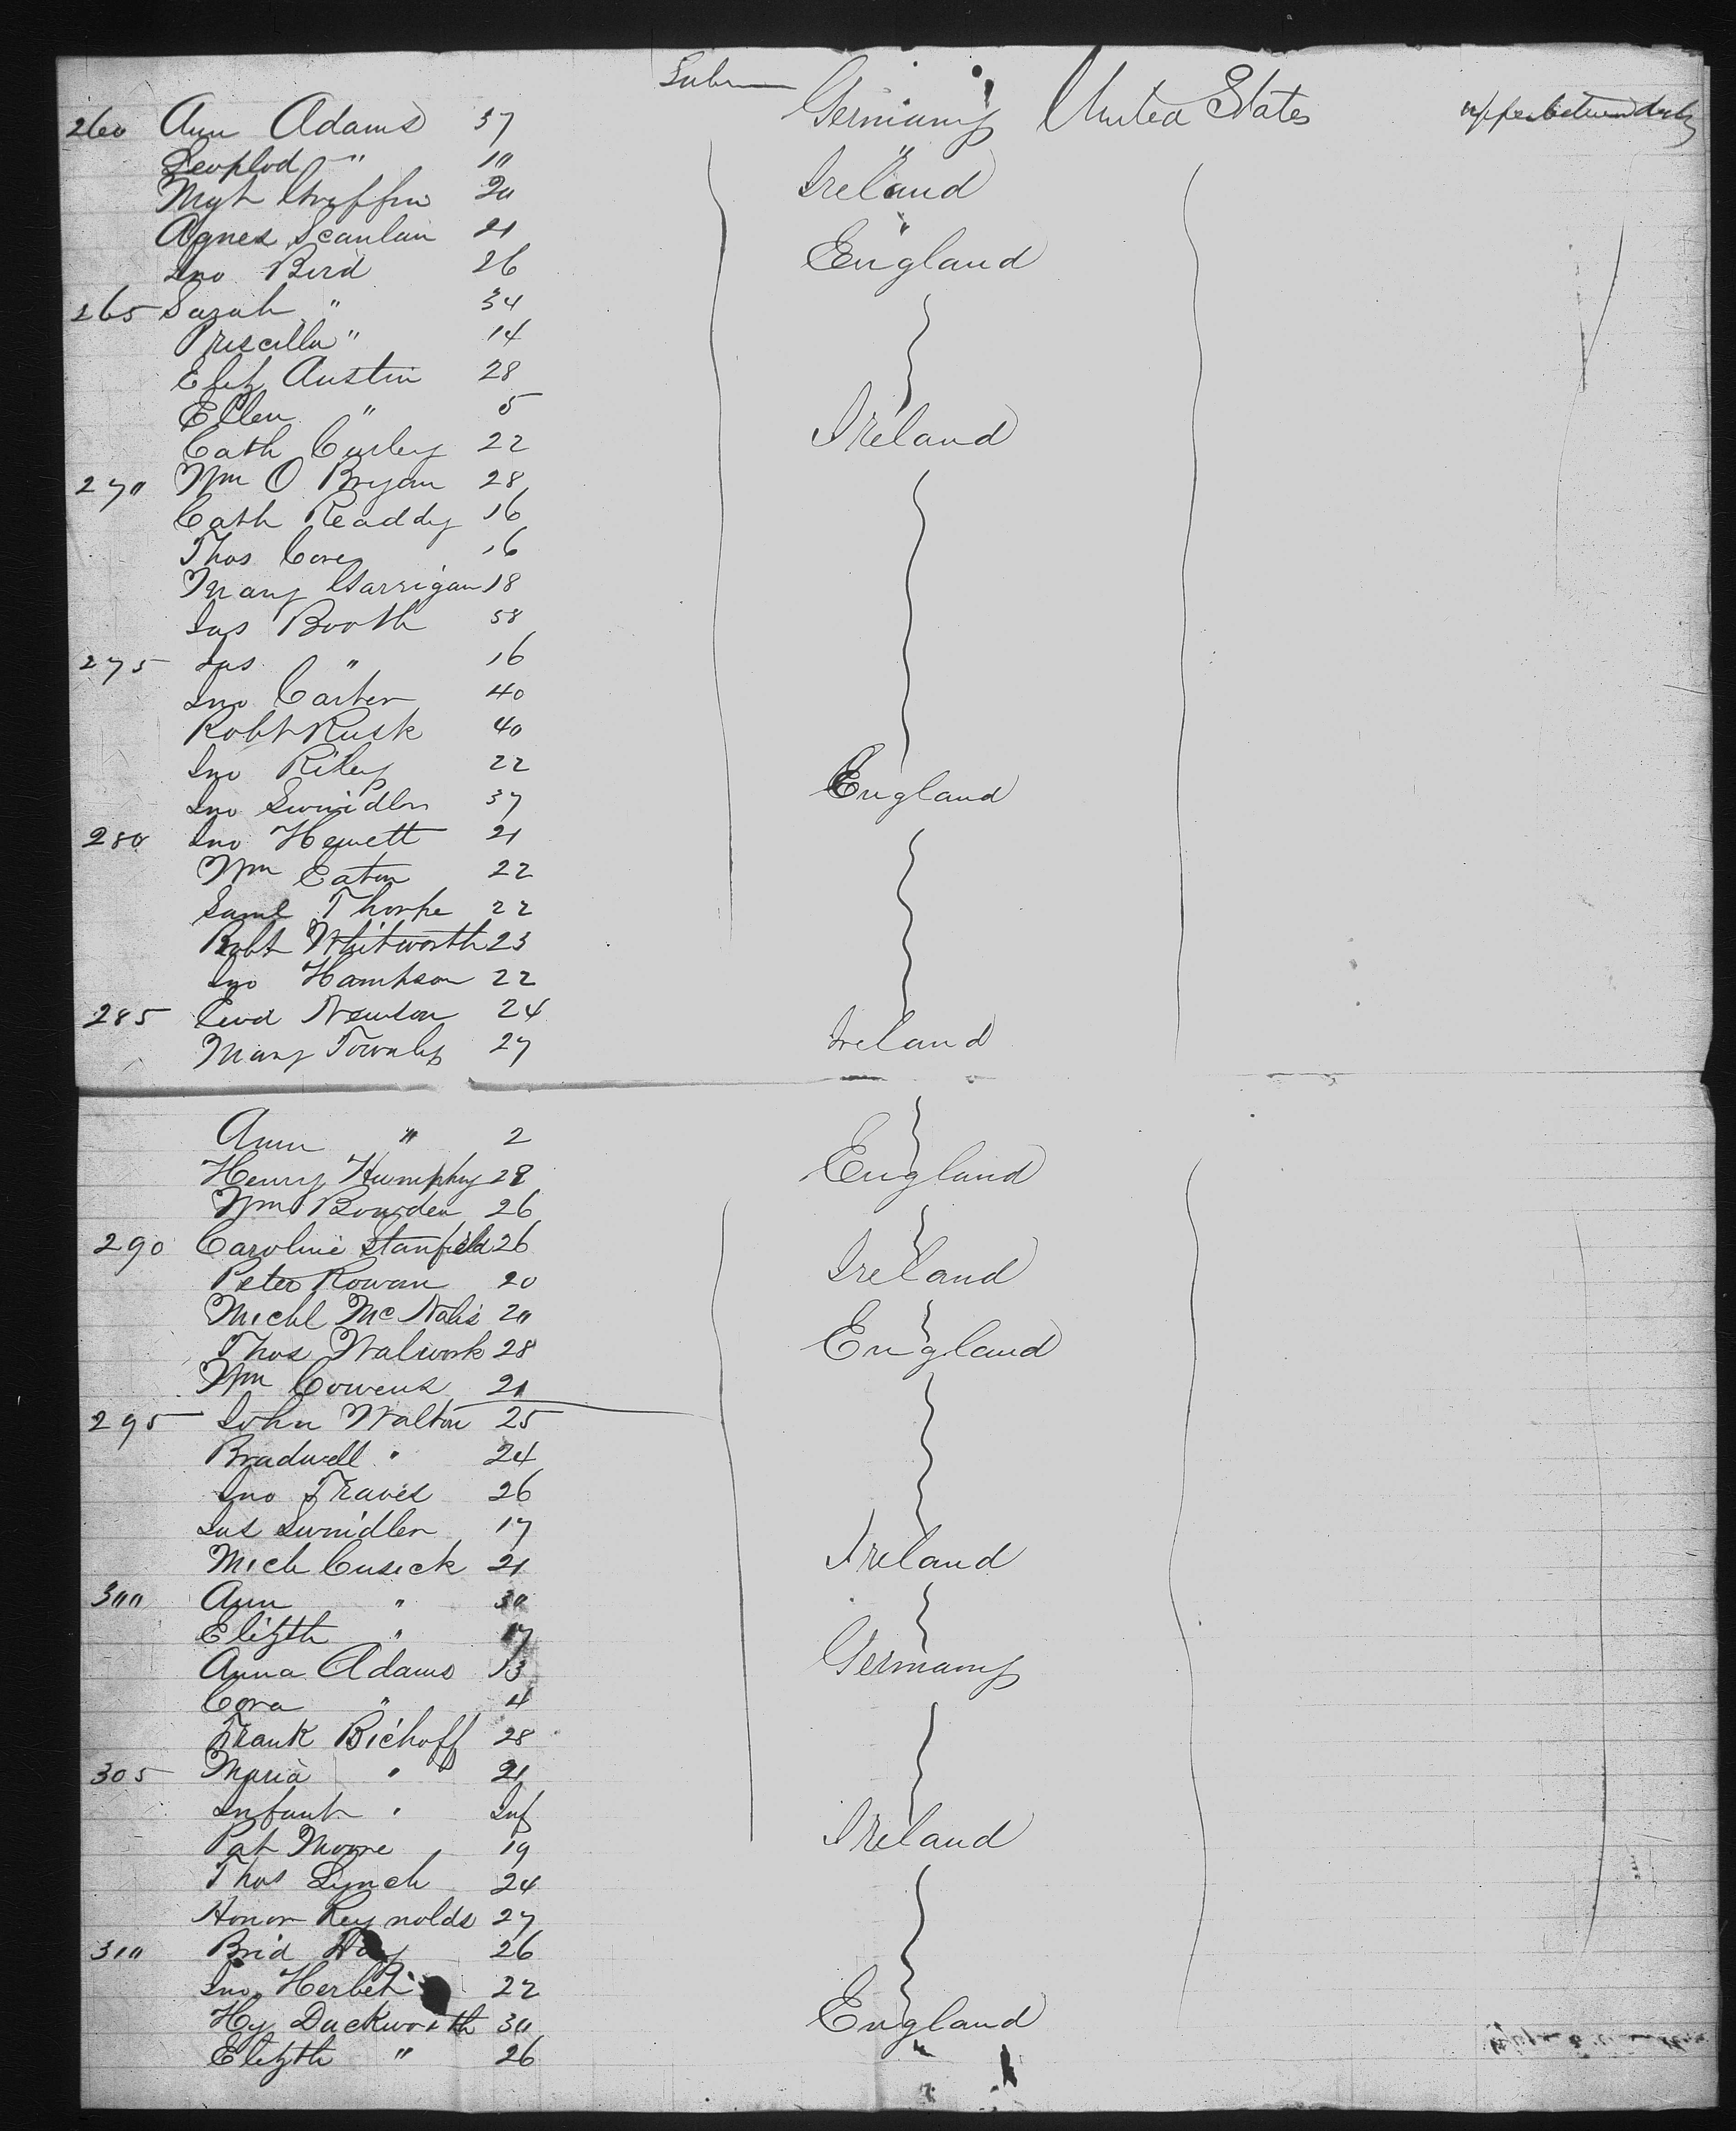 260 Ann Adams 37 Germany United States upper between decks
Leoplod " 10 "
Mgt Griffin 20 Ireland
Agnes Scanlan 21 "
Jno Bird 26 England
265 Sarah " 34
Priscilla " 14
Eliz Austin 28
Ellen " 5
Cath Curley 22 Ireland
270 Wm O Bryan 28
Cath Readdy 16
Thos 16
Mary Garrigan 18
Jas Booth 58
275 Jas " 16
Jno Carter 40
Robt Rusk 40
Jno Riley 22
Jno Swindler 37 England
280 Jno Hewett 21
Wm Eaton 22
Saml Thorpe 22
Robt Whitworth 23
Jno Hampson 22
285 Newton 24
Mary Townly 27 Ireland
Ann " 2
Henry Humphy 28 England
Wm Bowden 26
290 Caroline Stanfield 26
Peter Rowan 20 Ireland
Michl 20
Thos Walwork 28 England
Wm Cowens 21
295 John Walton 25
Bradwell " 24
Jno Travis 26
Jas Swindler 17
Mich Cusick 21 Ireland
300 Ann " 30
Elizth " 17
Anna Adams 13 Germany
Cora " 4
Frank Bichoff 28
305 Maria " 21
Infant " Inf
Pat Moore 19 Ireland
Thos Lynch 24
Honor Reynolds 27
310 Brid 26
Jno Herbet 22
Hy Duckworth 30 England
Elizth " 26 "